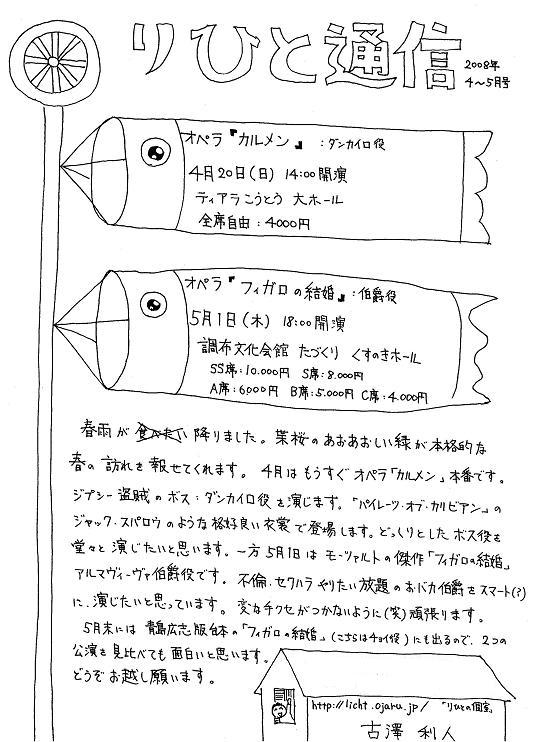 りひと通信
2008年
4〜5月号
オペラ『カルメン』:ダンカイロ役
4月20日(日) 14:00開演
ティアラこうとう 大ホール
全席自由:4000円
オペラ『フィガロの結婚』:伯爵役
5月1日(木) 18:00開演
調布文化会館 たづくり くすのきホール
SS席:10.000円 S席:8.000円
A席:6000円 B席:5.000円 C席:4.000円
春雨が食べたい降りました。葉桜のあおあおしい緑が本格的な
春の訪れを報せてくれます。4月はもうすぐオペラ「カルメン」本番です。
ジプシー盗賊のボス:ダンカイロ役を演じます。「パイレーツ・オブ・カリビアン」の
ジャック・スパロウのような格好良い衣裳で登場します。どっしりとしたボス役を
堂々と演じたいと思います。一方5月1日はモーツァルトの傑作「フィガロの結婚」
アルマヴィーヴァ伯爵役です。不倫・セクハラやりたい放題のおバカ伯爵をスマート(?)
に演じたいと思っています。変なチクセがつかないように(笑)頑張ります。
5月末には青島広志版台本の「フィガロの結婚」(こちらはチョイ役)にも出るので、2つの
公演を見比べても面白いと思います。
どうぞお越し願います。
http://licht.ojaru.jp/「りひとの個室」
古澤利人